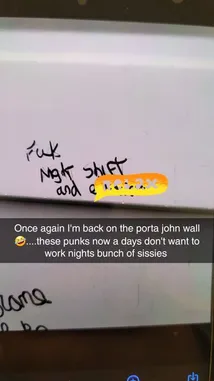 Fuk
Night shift
and
Once again I'm back on the porta john wall
🤣....these punks now a days don't want to
work nights bunch of sissies